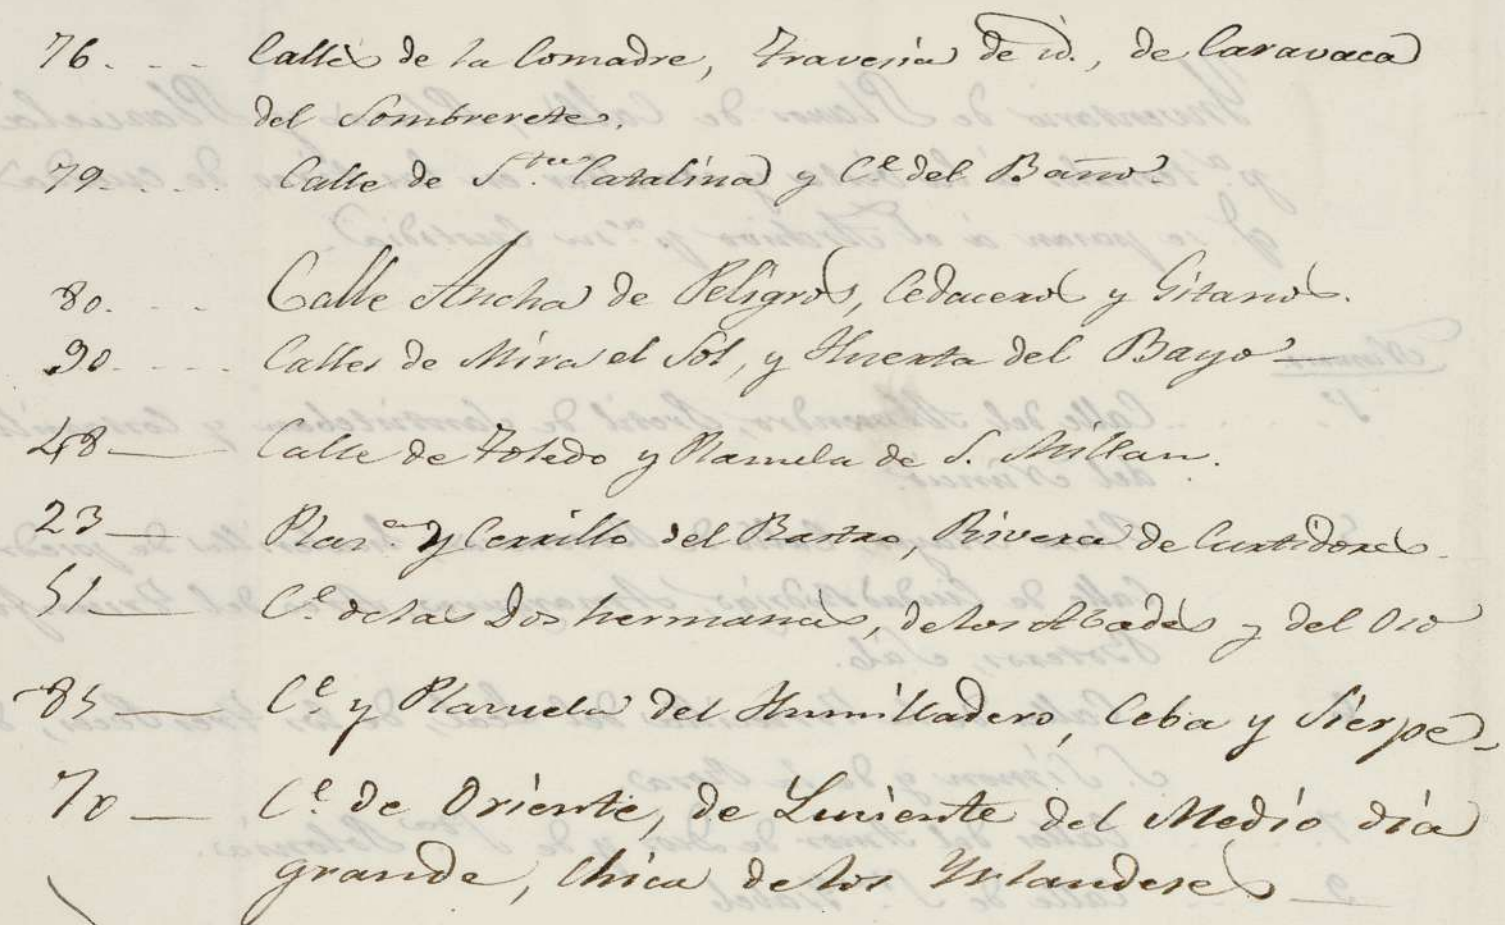 76. - - Calles de la Comadre, Travesia de id., de Caravaca
del Sombrerete.
79. - - - Calle de S.ta Catalina y C.e del Baño.
80. - - Calle Ancha de Peligros, Cedaceros y Gitanos.
90. - - - Calles de Mira el Sol, y Huerta del Bayo —
48 — Calle de Toledo y Plazuela de S. Millan.
23 — Plaz.a y Cerrillo del Rastro, Rivera de Curtidores.
51 — C.e de las Dos hermanas, de los Abades y del Oso
85 — C.e y Plazuela del Humilladero, Ceba y Sierpe -
70 — C.e de Oriente, de Luciente del Medio dia
grande, Chica de los Yrlandeses —